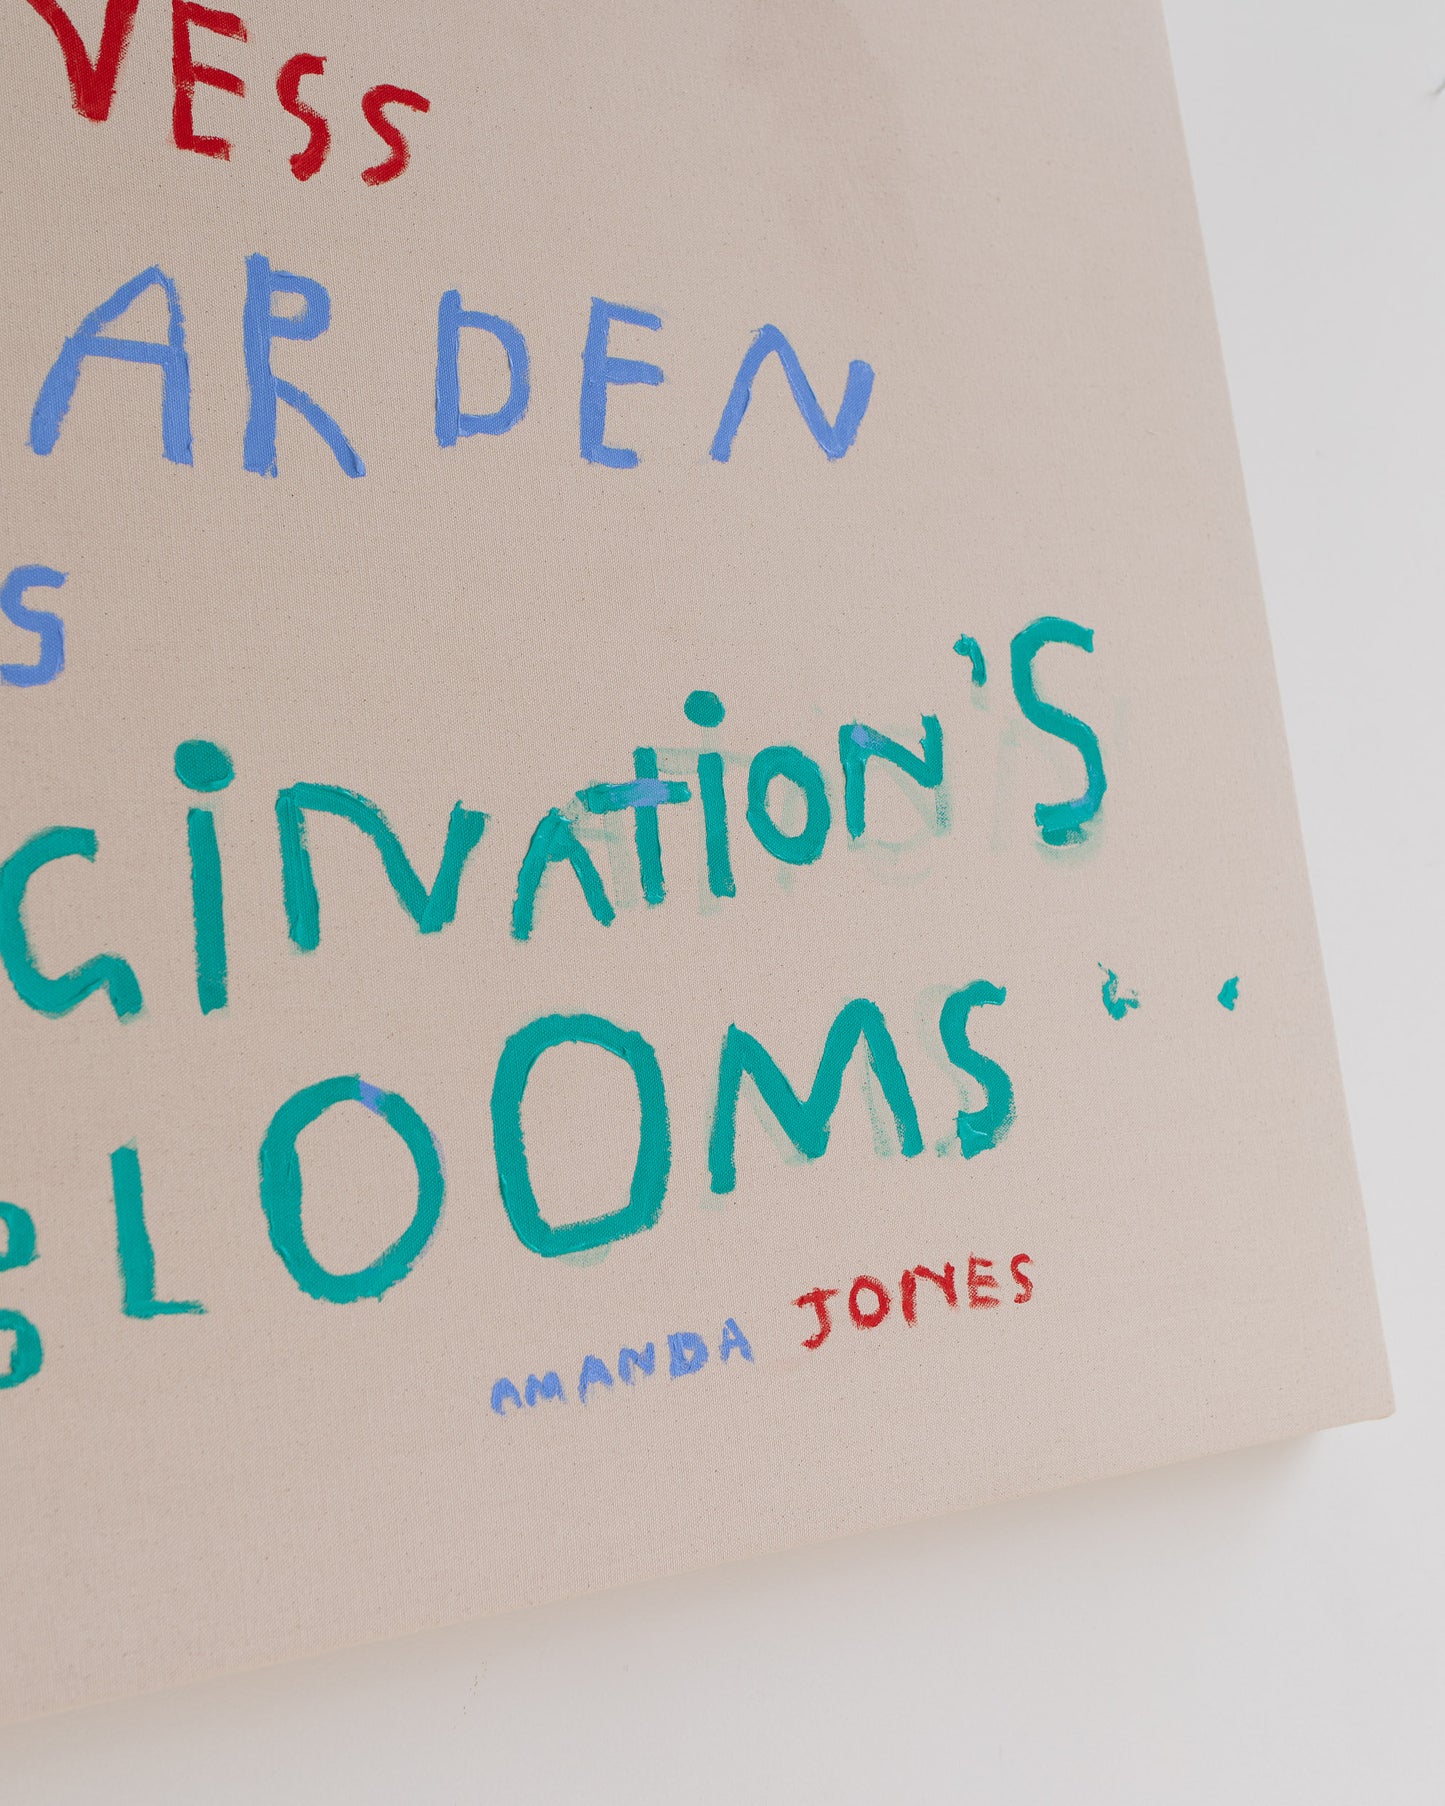 VESS
ARDEN
S
GiNATiON'S
BLOOMS..
AMANDA JONES